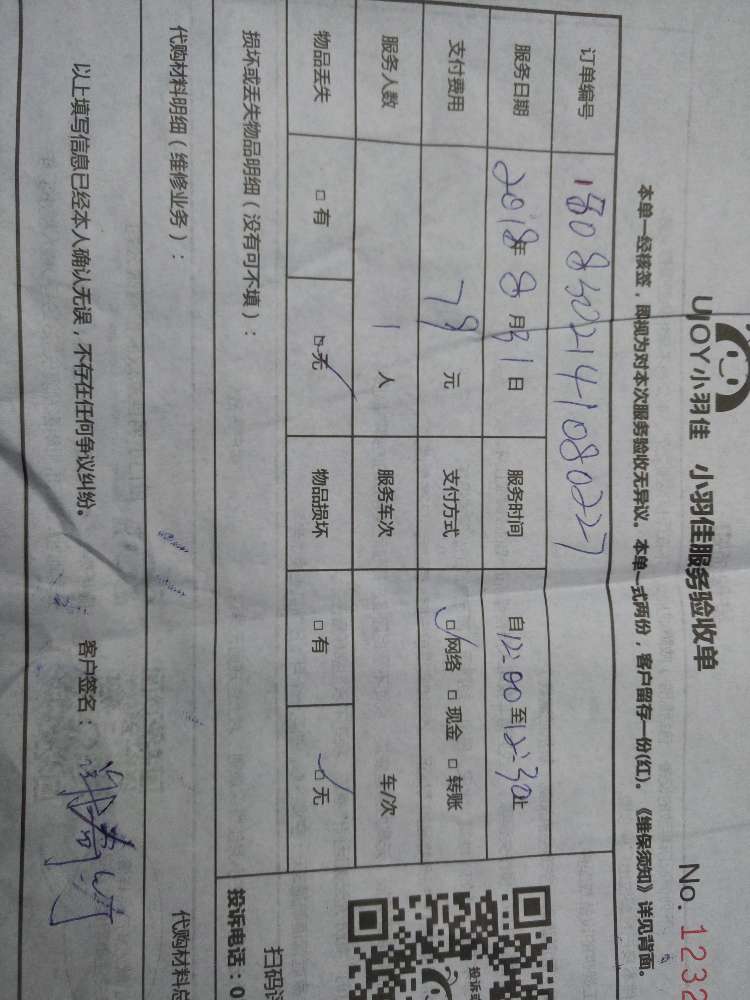 UJOY小羽佳 小羽佳服务验收单 No. 1232
本单一经核签，即视为对本次服务验收无异议。本单一式两份，客户留存一份(红)。《维保须知》详见背面。
订单编号 1808302141080227
服务日期 2018年8月31日 服务时间 自12:00至12:30止
支付费用 79元 支付方式 □网络 □现金 □转账
服务人数 1人 服务车次 车/次
物品丢失 □有 □无 物品损坏 □有 □无
损坏或丢失物品明细（没有可不填）：
扫码
投诉电话：0
代购材料明细（维修业务）： 代购材料总
以上填写信息已经本人确认无误，不存在任何争议纠纷。 客户签名：